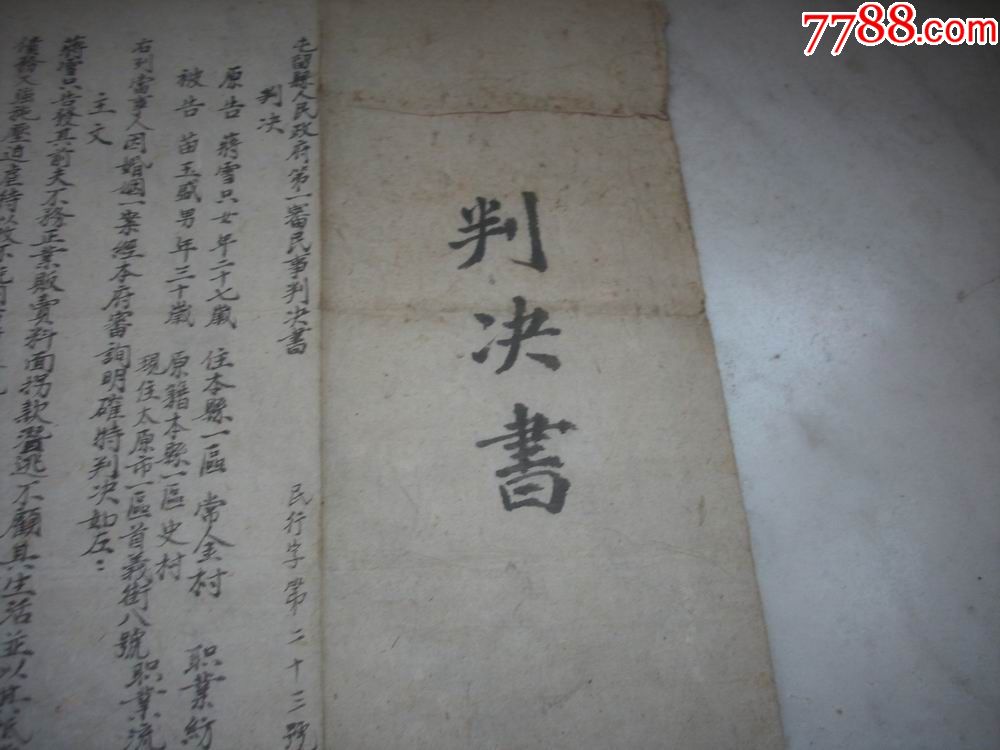 7788.com
判决書
屯留縣人民政府第一審民事判决書
判决 民行字第二十三號
原告 蔣雪只 女 年二十七歲 住本縣一區常金村 职業紡
被告 苗玉盛 男 年三十歲 原籍本縣一區史村
現住太原市一區首義街八號 职業流
右列當事人因婚姻一案經本府審詢明確特判决如左：
主文
蔣雪只告發其前夫不務正業販賣料面拐款潛逃不顧其生活並以其